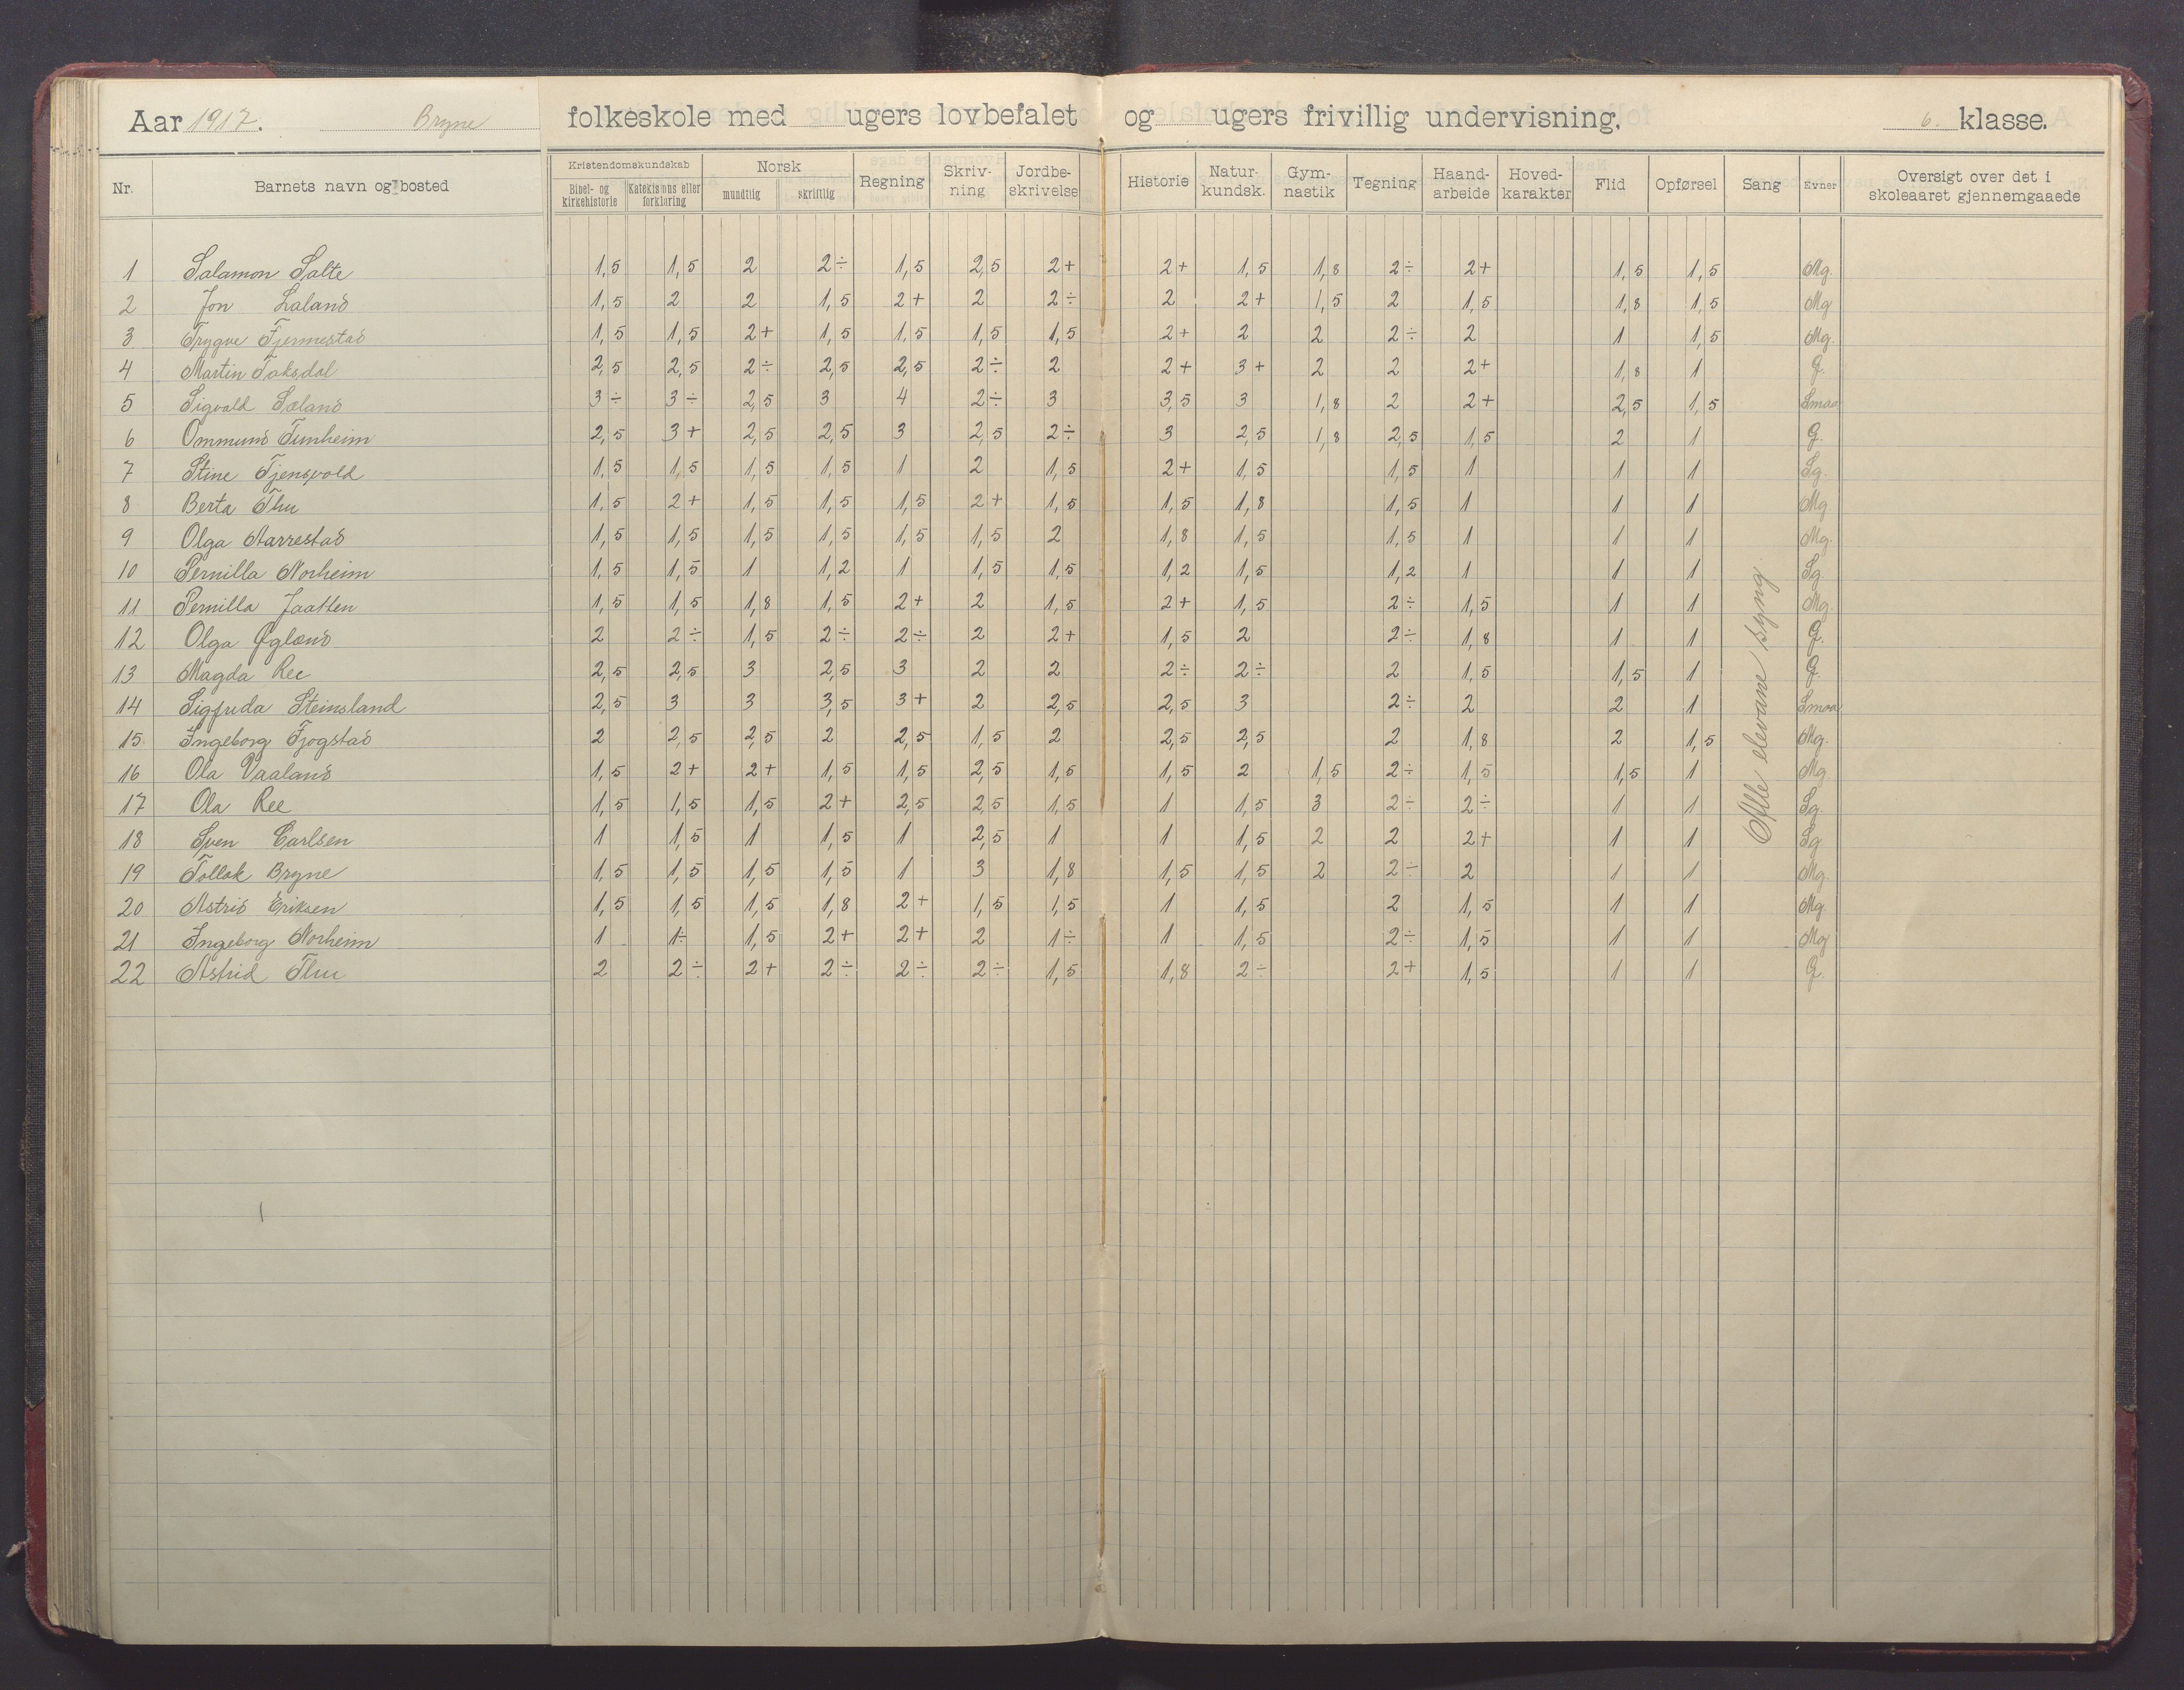 Aar 1917. Bryne folkeskole med ugers lovbefalet og ugers frivillig undervisning. 6. klasse.
Nr. Barnets navn og bosted Kristendomskundskab Bibel- og kirkehistorie Katekismus eller forklaring Norsk mundtlig skriftlig Regning Skriv-ning Jordbe-skrivelse Historie Natur-kundsk. Gym-nastik Tegning Haand-arbeide Hoved-karakter Flid Opførsel Sang Evner Oversigt over det i skoleaaret gjennemgaaede
1 Salamon Salte 1,5 1,5 2 2÷ 1,5 2,5 2+ 2+ 1,5 1,8 2÷ 2+ 1,5 1,5 Mg.
2 Jon Laland 1,5 2 2 1,5 2+ 2 2÷ 2 2+ 1,5 2 1,5 1,8 1,5 Mg
3 Trygve Tjermestad 1,5 1,5 2+ 1,5 1,5 1,5 1,5 2+ 2 2 2÷ 2 1 1,5 Mg.
4 Martin Taksdal 2,5 2,5 2÷ 2,5 2,5 2÷ 2 2+ 3+ 2 2 2+ 1,8 1 G.
5 Sigvald Sæland 3÷ 3÷ 2,5 3 4 2÷ 3 3,5 3 1,8 2 2+ 2,5 1,5 Smaa
6 Ommund Tunheim 2,5 3+ 2,5 2,5 3 2,5 2÷ 3 2,5 1,8 2,5 1,5 2 1 G.
7 Stine Tjensvold 1,5 1,5 1,5 1,5 1 2 1,5 2+ 1,5 1,5 1 1 1 Sg.
8 Berta Thu 1,5 2+ 1,5 1,5 1,5 2+ 1,5 1,5 1,8 1,5 1 1 1 Mg.
9 Olga Aarrestad 1,5 1,5 1,5 1,5 1,5 1,5 2 1,8 1,5 1,5 1 1 1 Mg.
10 Pernilla Norheim 1,5 1,5 1 1,2 1 1,5 1,5 1,2 1,5 1,2 1 1 1 Sg.
11 Pernilla Jaatten 1,5 1,5 1,8 1,5 2+ 2 1,5 2+ 1,5 2÷ 1,5 1 1 Mg.
12 Olga Øglænd 2 2÷ 1,5 2÷ 2÷ 2 2+ 1,5 2 2÷ 1,8 1 1 G.
13 Magda Ree 2,5 2,5 3 2,5 3 2 2 2÷ 2÷ 2 1,5 1,5 1 G.
14 Sigfrida Steinsland 2,5 3 3 3,5 3+ 2 2,5 2,5 3 2÷ 2 2 1 Smaa
15 Ingeborg Fjogstad 2 2,5 2,5 2 2,5 1,5 2 2,5 2,5 2 1,8 2 1,5 Mg.
16 Ola Vaaland 1,5 2+ 2+ 1,5 1,5 2,5 1,5 1,5 2 1,5 2÷ 1,5 1,5 1 Mg
17 Ola Ree 1,5 1,5 1,5 2+ 2,5 2,5 1,5 1 1,5 3 2÷ 2÷ 1 1 Sg.
18 Sven Carlsen 1 1,5 1 1,5 1 2,5 1 1 1,5 2 2 2+ 1 1 Sg.
19 Tollak Bryne 1,5 1,5 1,5 1,5 1 3 1,8 1,5 1,5 2 2÷ 2 1 1 Mg.
20 Astrid Eriksen 1,5 1,5 1,5 1,8 2+ 1,5 1,5 1 1,5 2 1,5 1 1 Mg.
21 Ingeborg Norheim 1 1÷ 1,5 2+ 2+ 2 1÷ 1 1,5 2÷ 1,5 1 1 Mg
22 Astrid Thu 2 2÷ 2+ 2÷ 2÷ 2÷ 1,5 1,8 2÷ 2+ 1,5 1 1 G.
Alle elevane syng